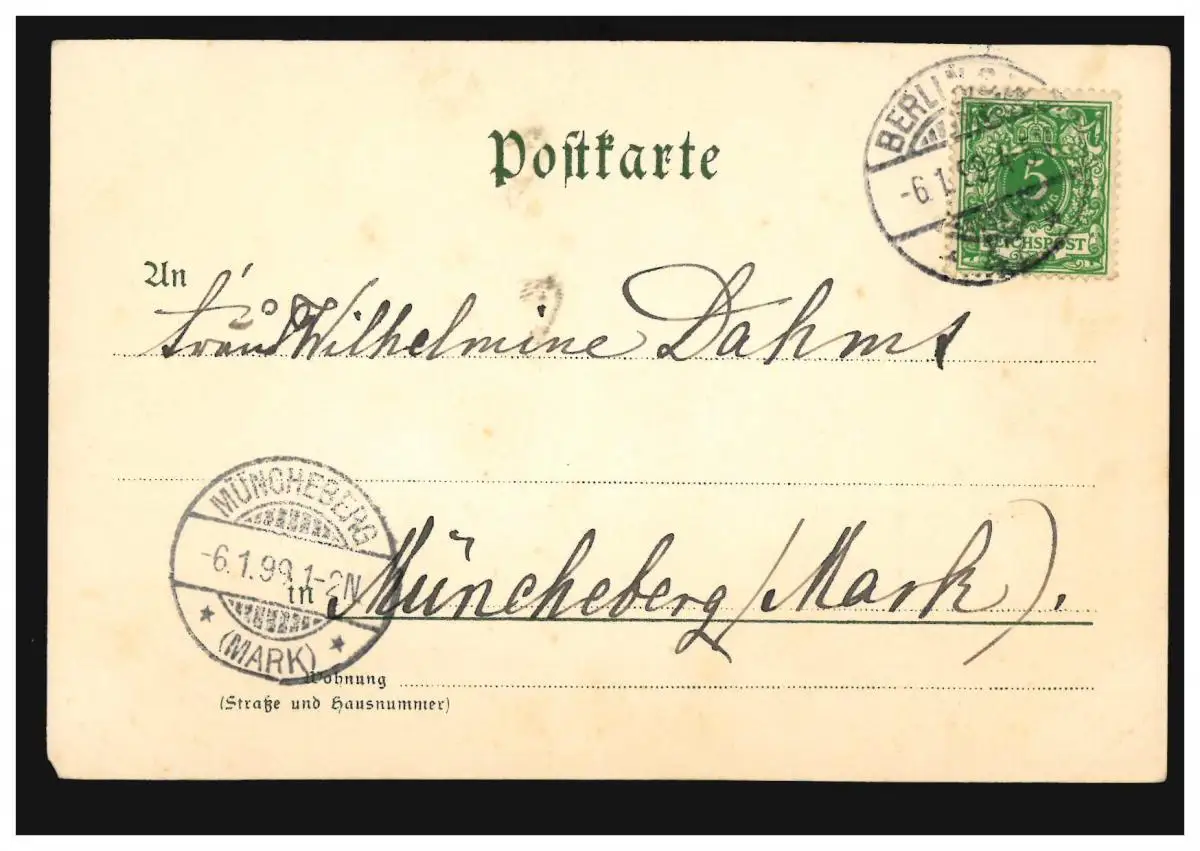 Postkarte
BERLIN S.W.
-6.1.99.4-
5
REICHSPOST
An
Frau Wilhelmine Dahms
MÜNCHEBERG
-6.1.99.1-2N
(MARK)
in Müncheberg (Mark).
Wohnung
(Straße und Hausnummer)